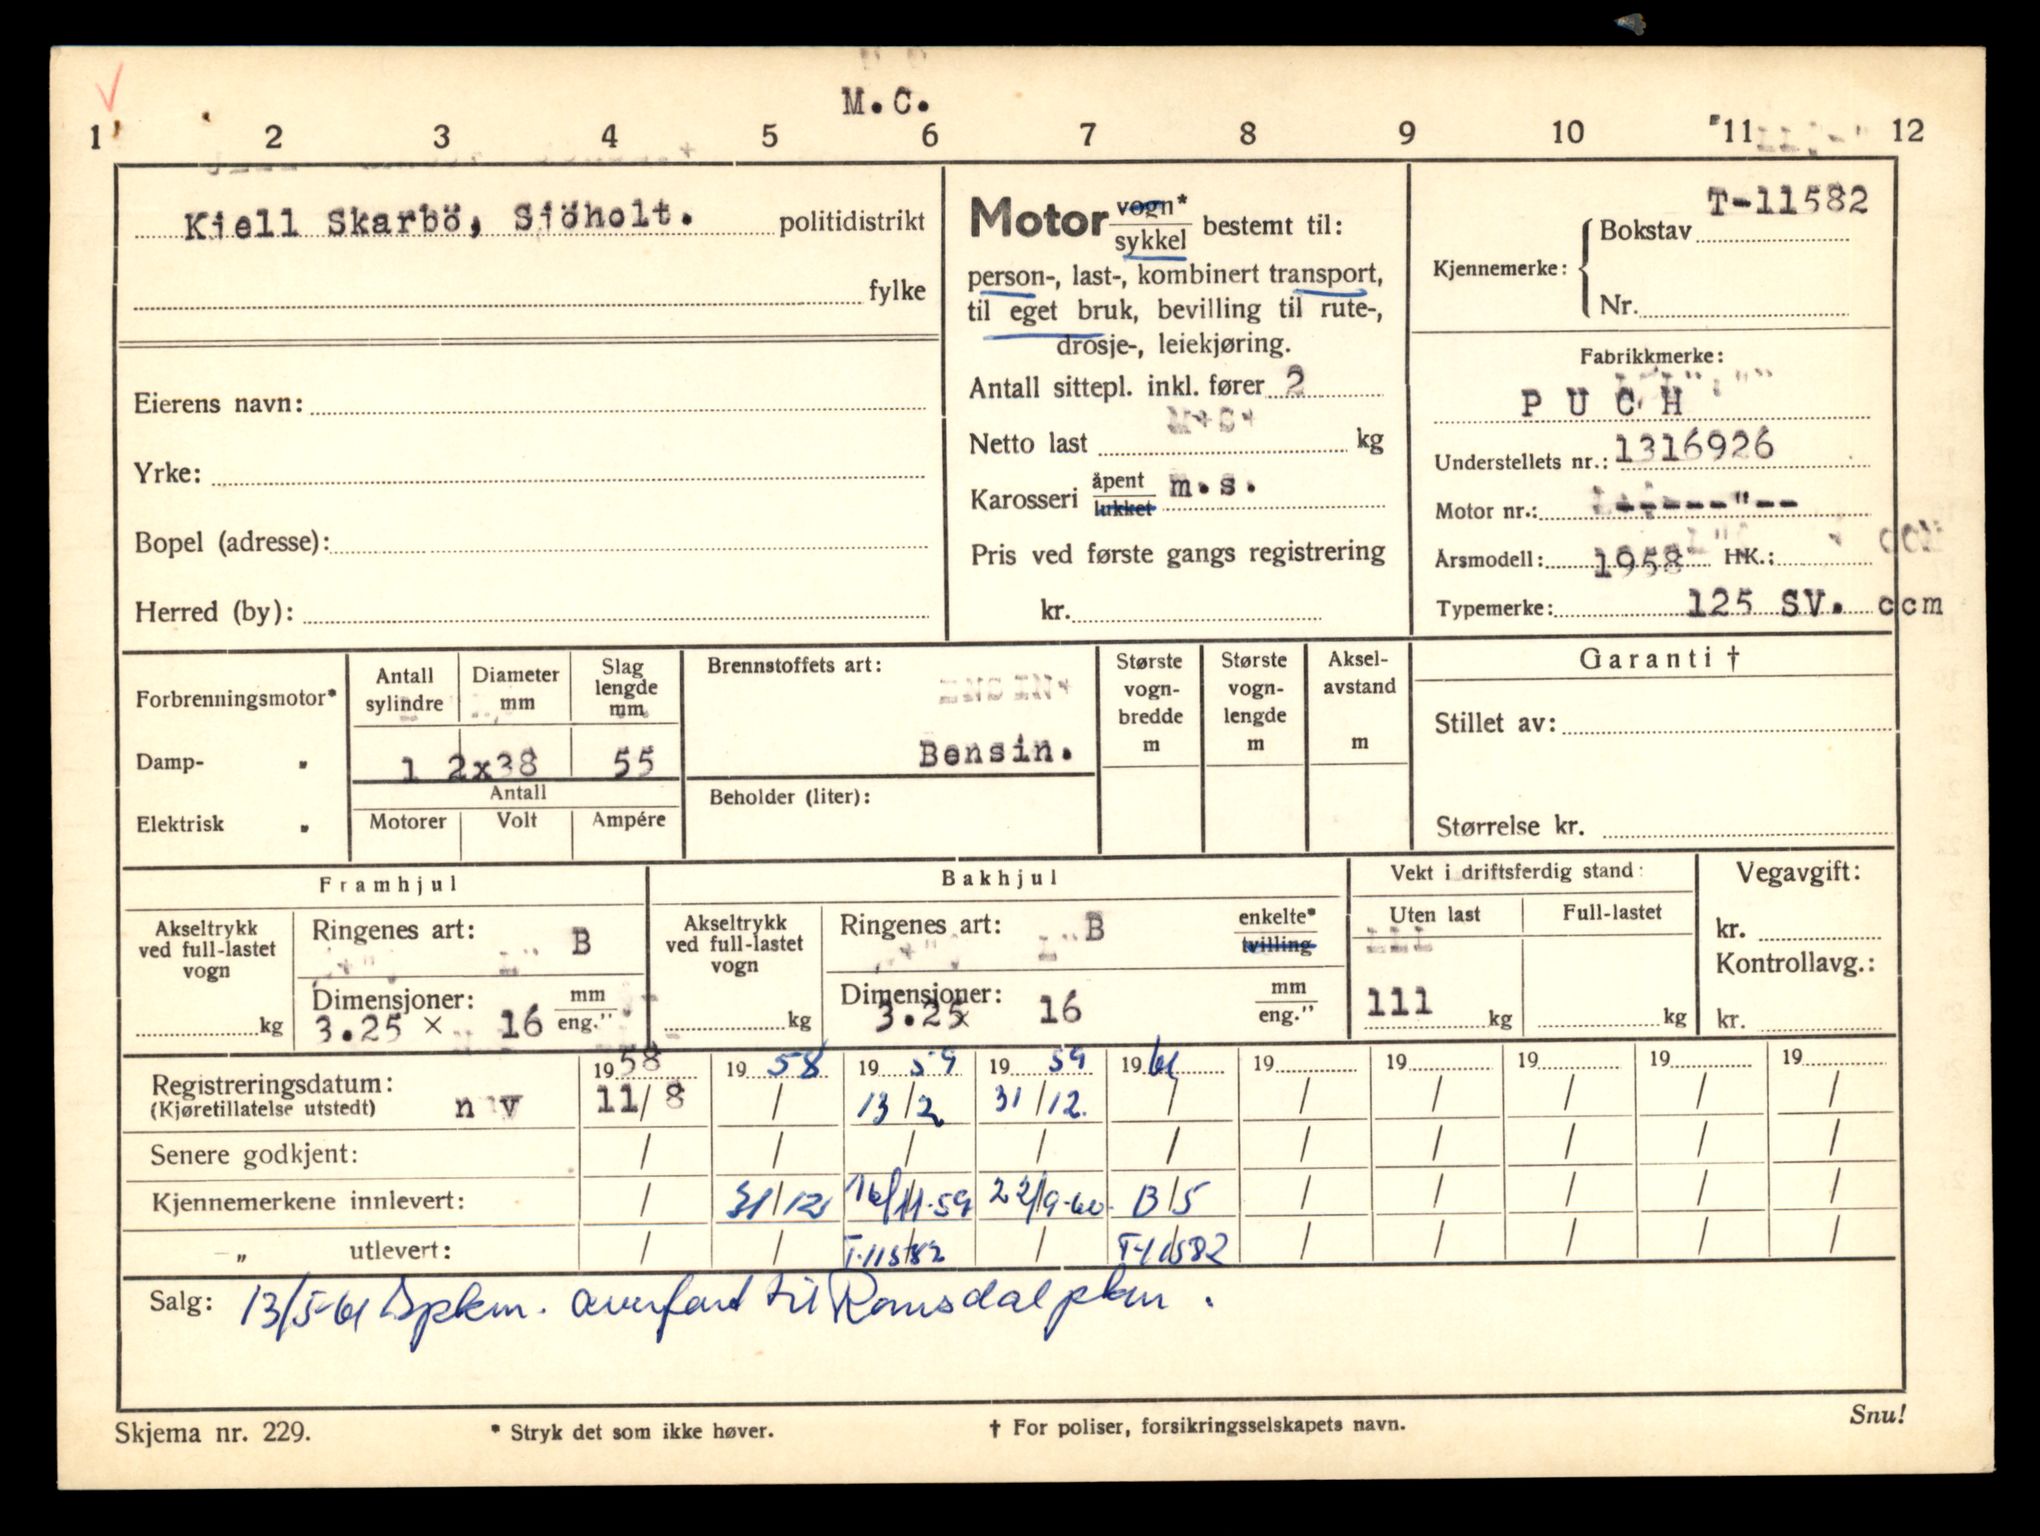 M.C.
1 2 3 4 5 6 7 8 9 10 11 12
Kjell Skarbö, Sjöholt. politidistrikt
fylke
Eierens navn:
Yrke:
Bopel (adresse):
Herred (by):
Motor vogn* / sykkel bestemt til:
person-, last-, kombinert transport,
til eget bruk, bevilling til rute-,
drosje-, leiekjøring.
Antall sittepl. inkl. fører 2
Netto last kg
Karosseri åpent / lukket m.s.
Pris ved første gangs registrering
kr.
T-11582
Kjennemerke: Bokstav
Nr.
Fabrikkmerke:
PUCH
Understellets nr.: 1316926
Motor nr.: ------"--
Årsmodell: 1958 HK.:
Typemerke: 125 SV. ccm
Forbrenningsmotor*
Damp- "
Elektrisk "
Antall sylindre Diameter mm Slag lengde mm
1 2x38 55
Antall
Motorer Volt Ampére
Brennstoffets art:
Bensin.
Beholder (liter):
Største vogn-bredde m
Største vogn-lengde m
Aksel-avstand m
Garanti †
Stillet av:
Størrelse kr.
Framhjul
Akseltrykk ved full-lastet vogn
kg
Ringenes art: B
Dimensjoner: mm
3.25 x 16 eng."
Bakhjul
Akseltrykk ved full-lastet vogn
kg
Ringenes art: B enkelte* / tvilling
Dimensjoner: mm
3.25 x 16 eng."
Vekt i driftsferdig stand:
Uten last Full-lastet
111 kg kg
Vegavgift:
kr.
Kontrollavg.:
kr.
19 58 19 58 19 59 19 59 19 61 19 19 19 19 19
Registreringsdatum:
(Kjøretillatelse utstedt) ny 11/8 / 13/2 31/12. / / / / / /
Senere godkjent: / / / / / / / / / /
Kjennemerkene innlevert: / 31/12 16/11-59 22/9-60. 13/5 / / / / /
–„ utlevert: / / T-11582 / T-11582 / / / / /
Salg: 13/5-61 Spkm. overført til Romsdal pkm.
Skjema nr. 229.
* Stryk det som ikke høver.
† For poliser, forsikringsselskapets navn.
Snu!